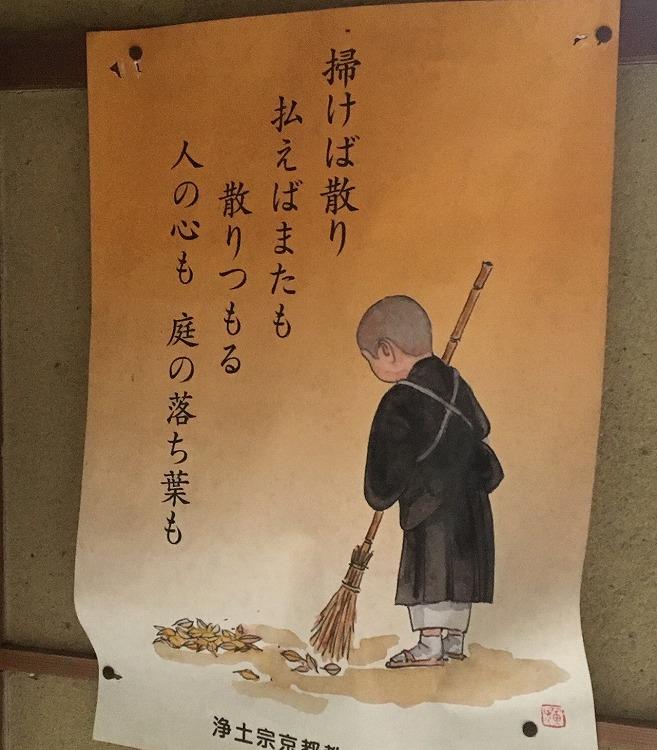 掃けば散り
払えばまたも
散りつもる
人の心も 庭の落ち葉も
浄土宗京都教